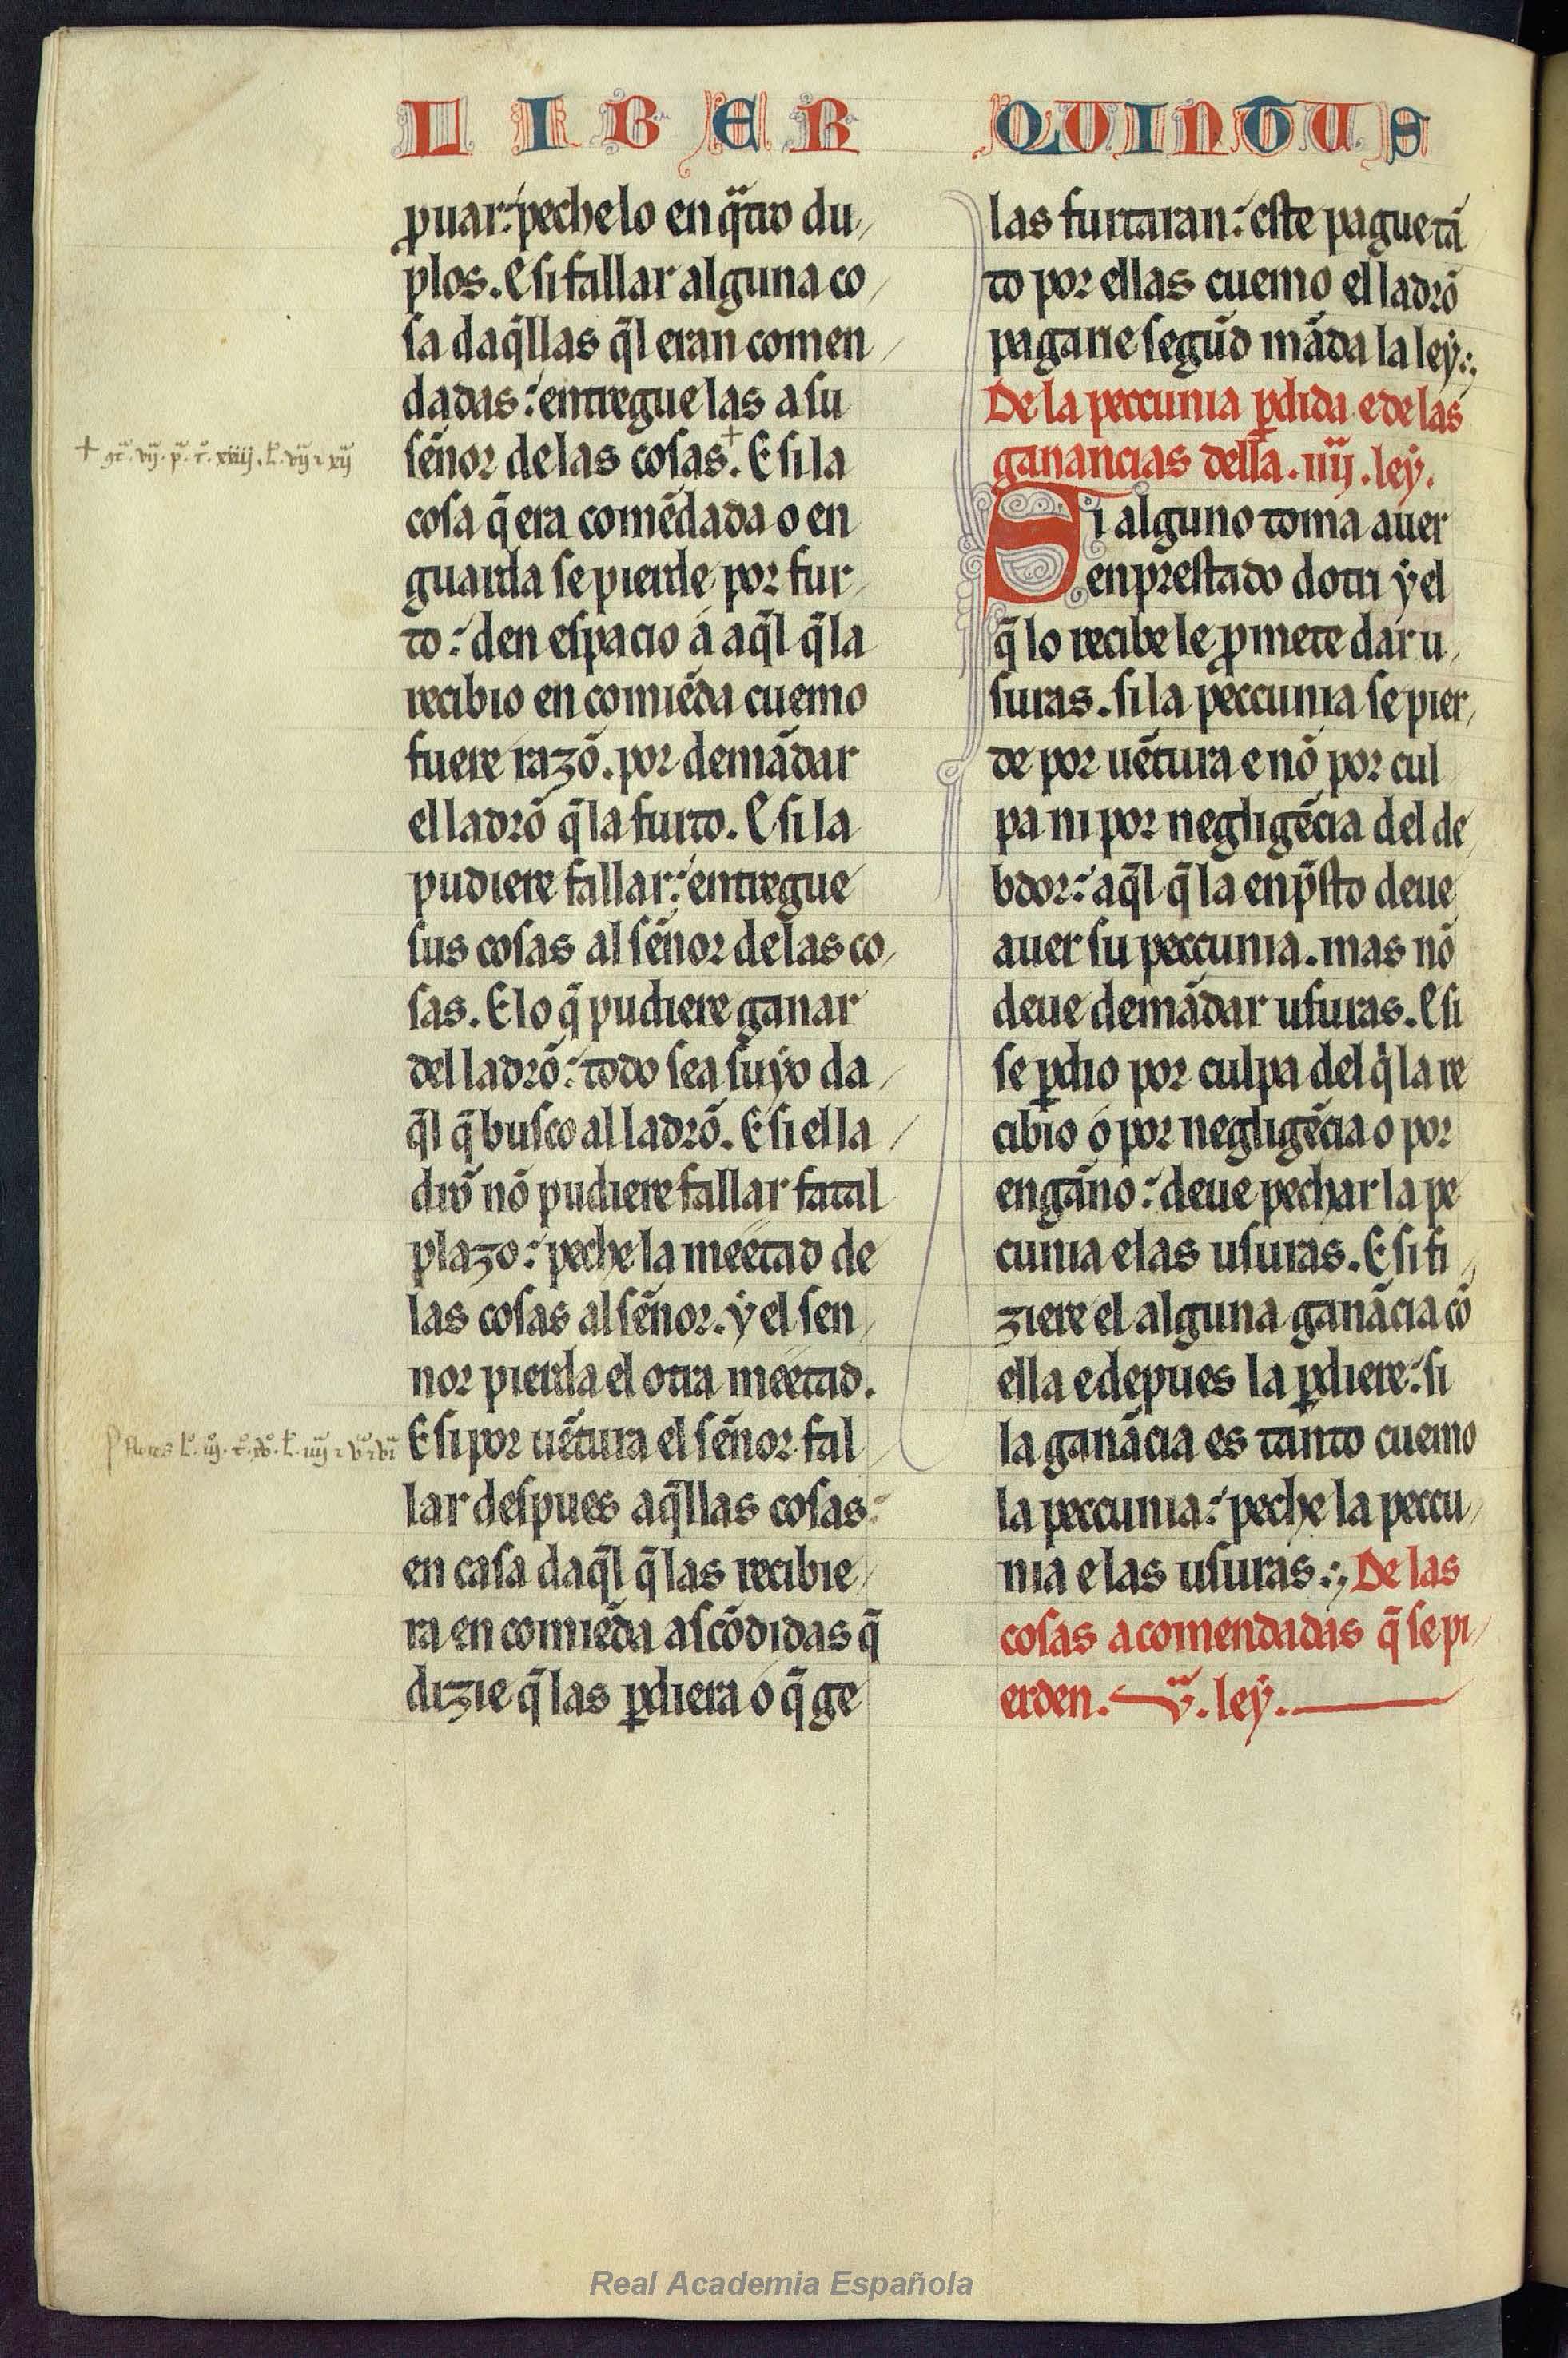 LIBER QUINTUS
ꝓuar: pechelo en q̃tro du
plos. E si fallar alguna co
sa daq̃llas q̃l eran comen
dadas: entregue las a su
sẽnor de las cosas+. E si la
cosa q̃ era comẽdada o en
guarda se pierde por fur
to: den espacio a aq̃l q̃ la
recibio en comiẽda cuemo
fuere razõ. por demãdar
el ladrõ q̃ la furto. E si la
pudiere fallar: entregue
sus cosas al sẽnor de las co
sas. E lo q̃ pudiere ganar
del ladrõ: todo sea suyo da
q̃l q̃ busco al ladrõ. E si el la
drõ nõ pudiere fallar fatal
plazo: peche la meetad de
las cosas al sẽnor. y el sen
nor pierda el otra meetad.
E si por uẽtura el sẽnor fal
lar despues aq̃llas cosas
en casa daq̃l q̃ las recibie
ra en comiẽda ascõdidas q̃
dizie q̃ las ꝑdiera o q̃ ge
las furtaran: este pague tã
to por ellas cuemo el ladrõ
pagarie segũd mãda la ley.
De la peccunia ꝑdida e de las
ganancias della. iiij. ley.
Si alguno toma auer
enprestado dotri y el
q̃ lo recibe le ꝓmete dar u
suras. si la peccunia se pier
de por uẽtura e nõ por cul
pa ni por negligẽcia del de
bdor: aq̃l q̃ la enp̃sto deue
auer su peccunia. mas nõ
deue demãdar usuras. E si
se ꝑdio por culpa del q̃ la re
cibio o por negligẽcia o por
engãno: deue pechar la pe
cunia e las usuras. E si fi
ziere el alguna ganãcia cõ
ella e depues la ꝑdiere: si
la ganãcia es tanto cuemo
la peccunia: peche la peccu
nia e las usuras. De las
cosas acomendadas q̃ se pi
erden. v. ley.
Real Academia Española